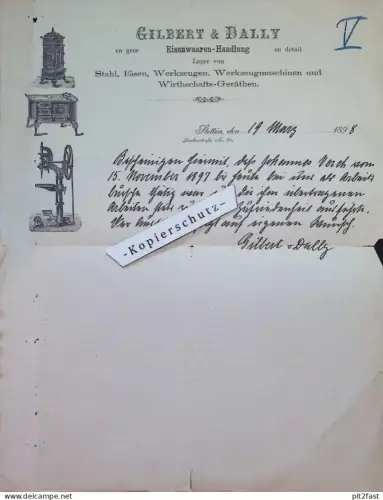 GILBERT & DALLY
en gros Eisenwaaren-Handlung en detail
V
Lager von
Stahl, Eisen, Werkzeugen, Werkzeugmaschinen und
Wirthschafts-Geräthen.
Stettin, den 19 März 1898
Bescheinigen hiermit, daß Johannes Verch vom
15. November 1897 bis heute bei uns als Arbeits
bursche thätig war und die ihm übertragenen
Arbeiten stets zu Zufriedenheit ausführte.
Der auf eigenen Wunsch.
Gilbert & Dally
-Kopierschutz-
www.delcampe.net
pit2fast